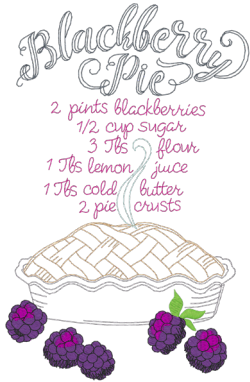 Blackberry
Pie
2 pints blackberries
1/2 cup sugar
3 Tbs flour
1 Tbs lemon juice
1 Tbs cold butter
2 pie crusts